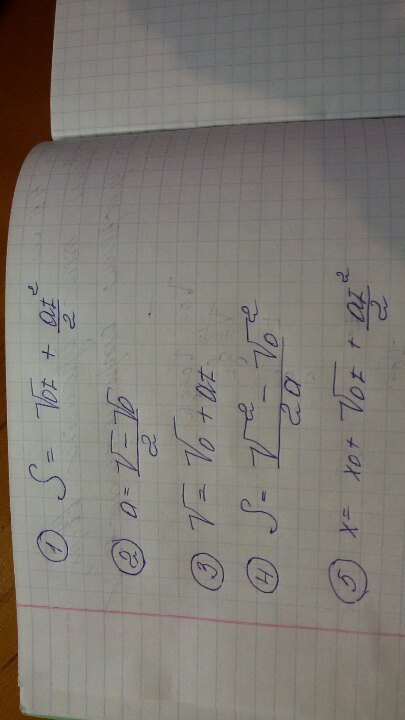 ① S = V₀t + at²/2
② a = V - V₀/2
③ V = V₀ + at
④ S = V² - V₀²/2a
⑤ x = x₀ + V₀t + at²/2